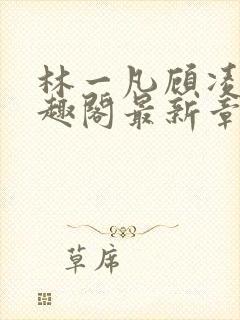 林一凡顾凌
趣阁最新章
草席